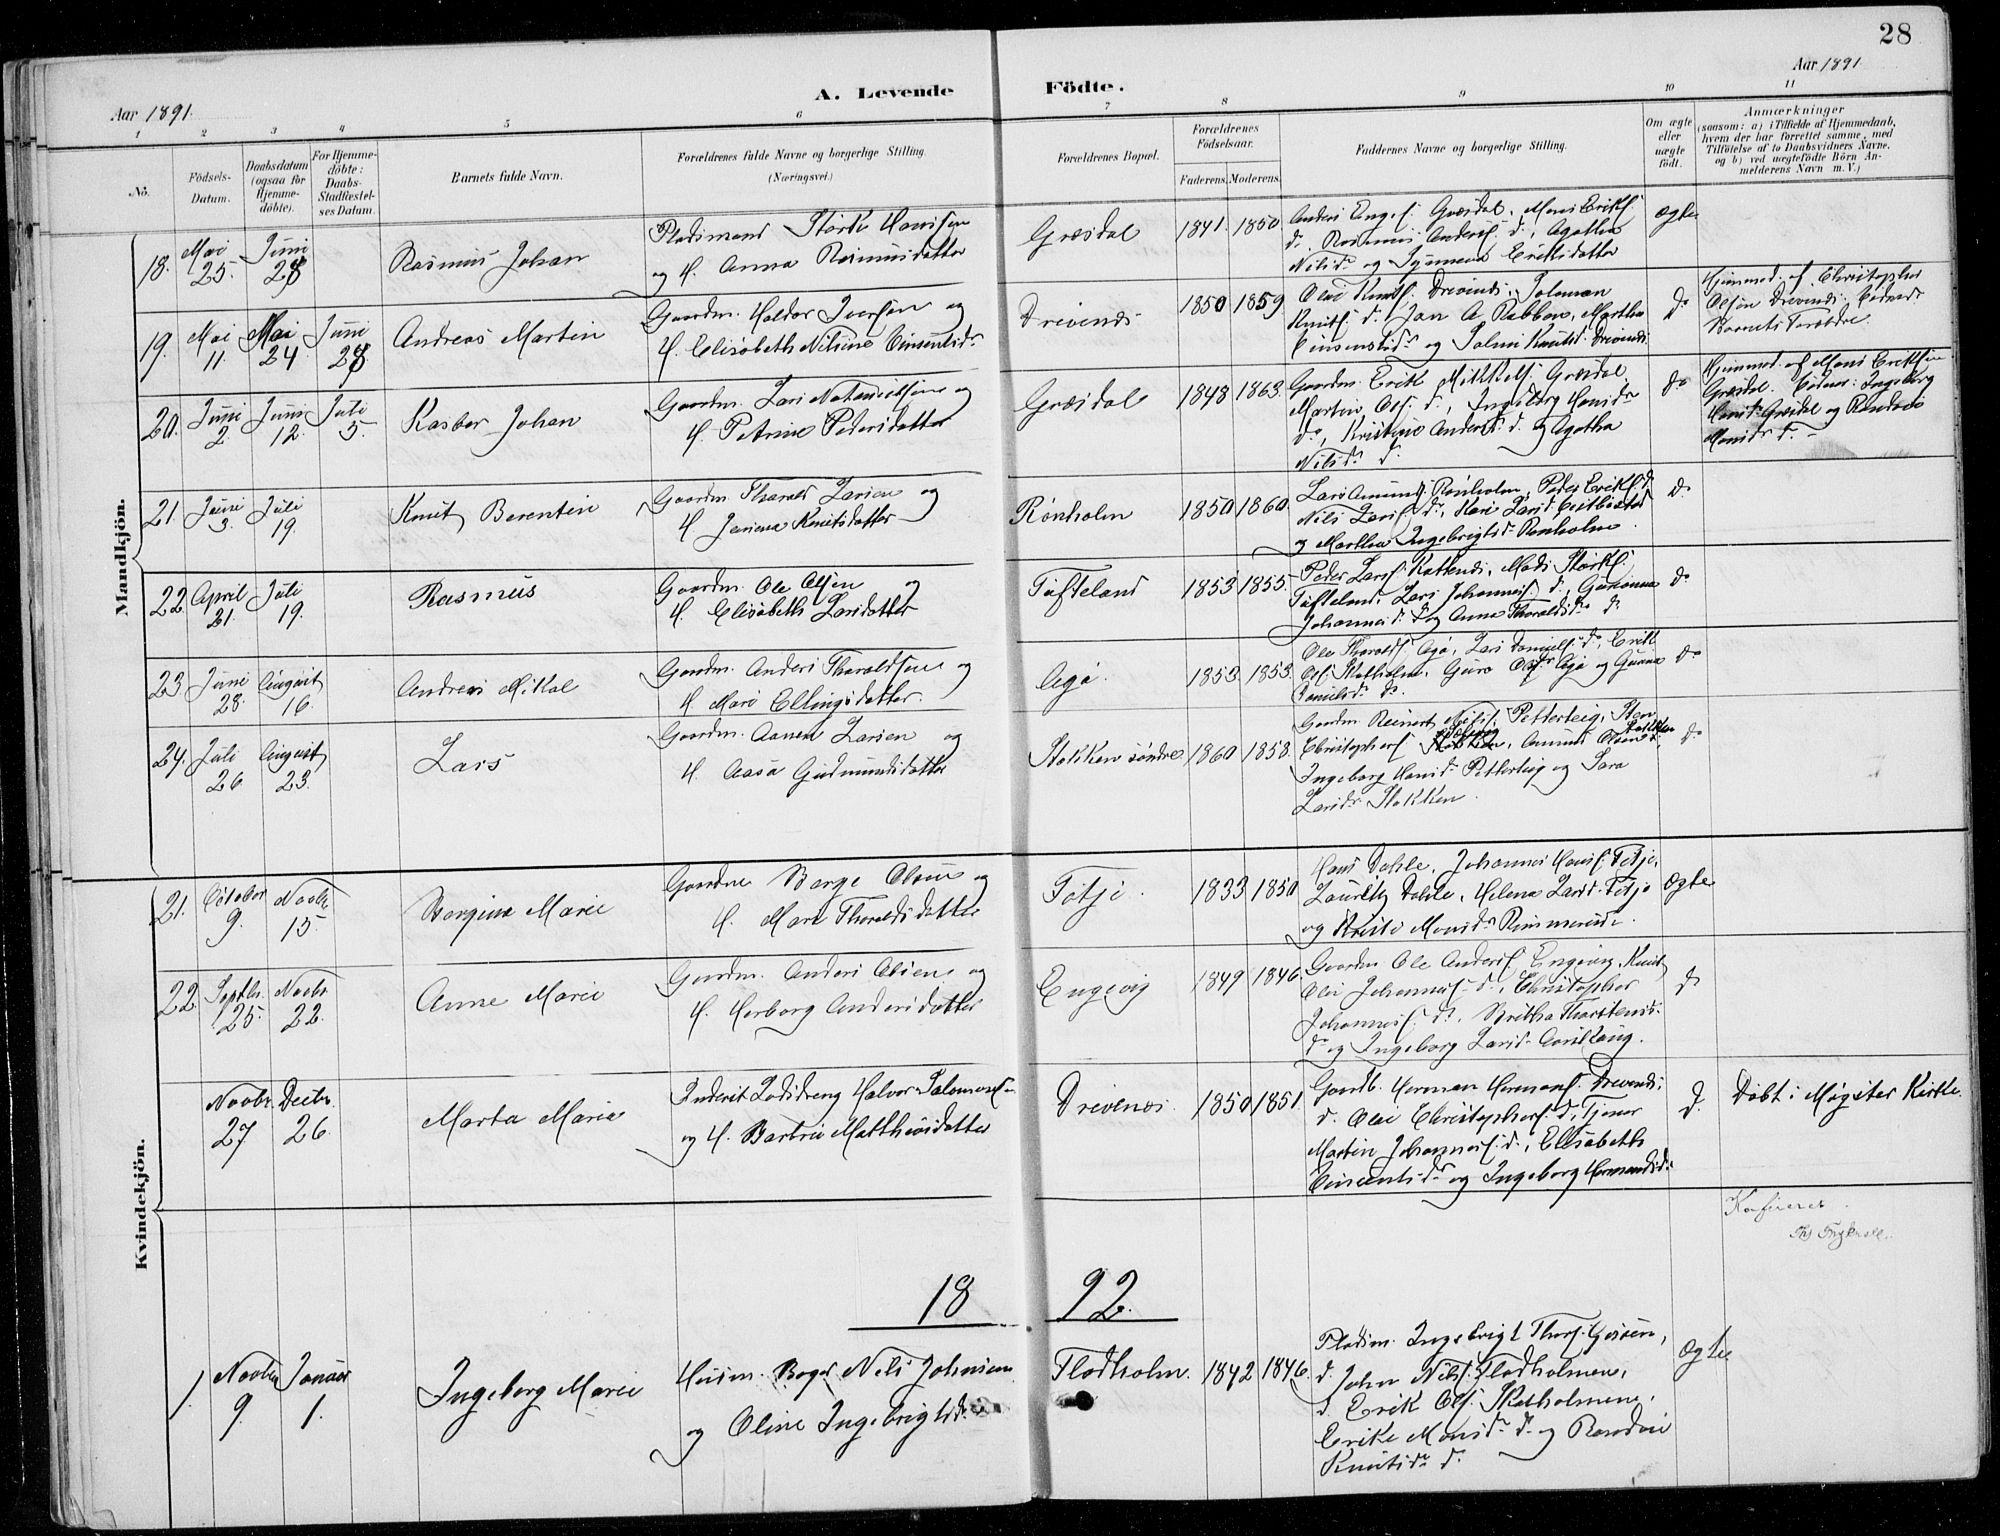 28
Aar 1891.
A. Levende
Födte.
Aar 1891
1 2 3 4 5 6 7 8 9 10 11
No.
Födsels-
Datum.
Daabsdatum
(ogsaa for
Hjemme-
döbte).
For Hjemme-
döbte:
Daabs-
Stadfæstel-
ses Datum.
Barnets fulde Navn.
Forældrenes fulde Navne og borgerlige Stilling.
(Næringsvei.)
Forældrenes Bopæl.
Forældrenes
Födselsaar.
Faderens. Moderens.
Faddernes Navne og borgerlige Stilling.
Om ægte
eller
uægte
födt.
Anmærkninger
(saasom: a) i Tilfælde af Hjemmedaab,
hvem der har forrettet samme, med
Tilföielse af to Daabsvidners Navne,
og b) ved uægtefödte Börn An-
melderens Navn m. V.)
Mandkjön.
18. Mai 25. Juni 28
Rasmus Johan
Pladsmand Størk Hansen
og H. Anna Rasmusdatter
Græsdal 1841. 1850
Anders Enges. Græsdal, Mons Eriks.
do Rasmus Anders. do, Agatha
Nilsdr og Erikksdatter
ægte
19. Mai 11. Mai 24 Juni 28
Andreas Martin
Gaardm. Haldor Iversen og
H. Elisabeth Nilsine Vinsentsdr
Drivenes 1850 1859
Olai Knuts. Drivenes, Salomon
Knuts. do, Jan A Rabben, Martha
Vinsentsdr og Salmi Knutsd. Drivenes
do
Hjemmed. af Christopher
Olsen Drivenes. Vidner:
Barnets Forældre.
20. Juni 2. Juni 12. Juli 5.
Kasber Johan
Gaardm. Lars Natanielsen og
H. Petrine Pedersdatter
Græsdal 1848 1863
Gaardm. Erik Mikkels. Græsdal,
Martin Ols. do, Ingeborg Hansdr
do, Kristine Andersd. do og Agatha
Nilsdr do
do
Hjemmed. af Mons Eriksen
Græsdal. Vidner: Ingeborg
Hansdr Græsdal og Randvei
Monsdr do
21. Juni 3. Juli 19.
Knut Berentin
Gaardm. Tharald Larsen og
H. Jensine Knutsdatter
Rönholm 1850 1860.
Lars Amunds. Rønholm, Peder Eriks. do
Nils Lars. do, Kari Larsd.
og Martha Ingebrigtsdr Rønholm.
do
22 April 21. Juli 19.
Rasmus
Gaardm. Ole Olsen og
H. Elisabeth Larsdatter
Tufteland 1853 1855.
Peder Lars. Kattenes, Mads Størks.
Tufteland, Lars Johannes. do,
Johannesd. do og Anna Tharaldsdr do
do
23. Juni 28. August 16.
Andreas Mikal
Gaardm. Anders Tharaldsen og
H. Mari Ellingsdatter.
Agø. 1853 1853.
Ole Tharalds. Agø, Lars Daniels. do, Erik
Ols. Skotholm, Guro Olsdr Agø og Gurina
Danielsdr do.
do
24. Juli 26 August 23.
Lars
Gaardm. Aanen Larsen og
H. Aasa Gudmundsdatter
Stokken søndre 1860 1858.
Gaardm. Reinert Nils. Petterteig, Sten
Christophers. Stokken, Amund Olsen Stokken
Ingeborg Hansdr Petterteig og Sara
Larsdr Stokken.
do
Kvindekjön.
21. October 9. Novbr. 15.
Bergine Marie
Gaardm Børge Olsen og
H. Mari Tharaldsdatter
Totje. 1833 1850
Hans Dahle, Johannes Hans. Totje,
Lauritz Dahle, Helena Larsd. Totje
og Kristi Monsdr Rimmereide.
ægte
22 Septbr. 25. Novbr 22.
Anne Marie
Gaardm. Anders Olsen og
H. Herborg Andersdatter
Engevig 1849 1846.
Gaardm Ole Anders. Engevig, Knut
Olai Johannes. do, Christopher
Johannes. do, Britha Tharstens-
dr og Ingeborg Larsdr
do
Novbr. 27 Decbr. 26.
Marta Maria
Inderst Lodsdreng Halvor Salomons.
og H. Bertrii Matthiasdatter
Drivenes 1850 1851
Gaardb. Herman Hermans. Drivenes;
do. Olai Christophers. do, Tjener
Martin Johannes. do, Elisabeth
Vinsentsdr og Ingeborg Hermansdr
do
Døbt i Møgster Kirke.
Konfereret.
18 92.
1. Novbr 9. Januar 1.
Ingeborg Marie
Husm. Nils Johnsen
og Oline Ingebrigtsdr
Flodholm. 1842 1846.
Pladsm. Ingebrigt Thors.
do. John Nils. Flodholmen,
do. Erik Ols. Skotholmene,
Erike Monsdr do og Randvei
Knutsdr do
ægte